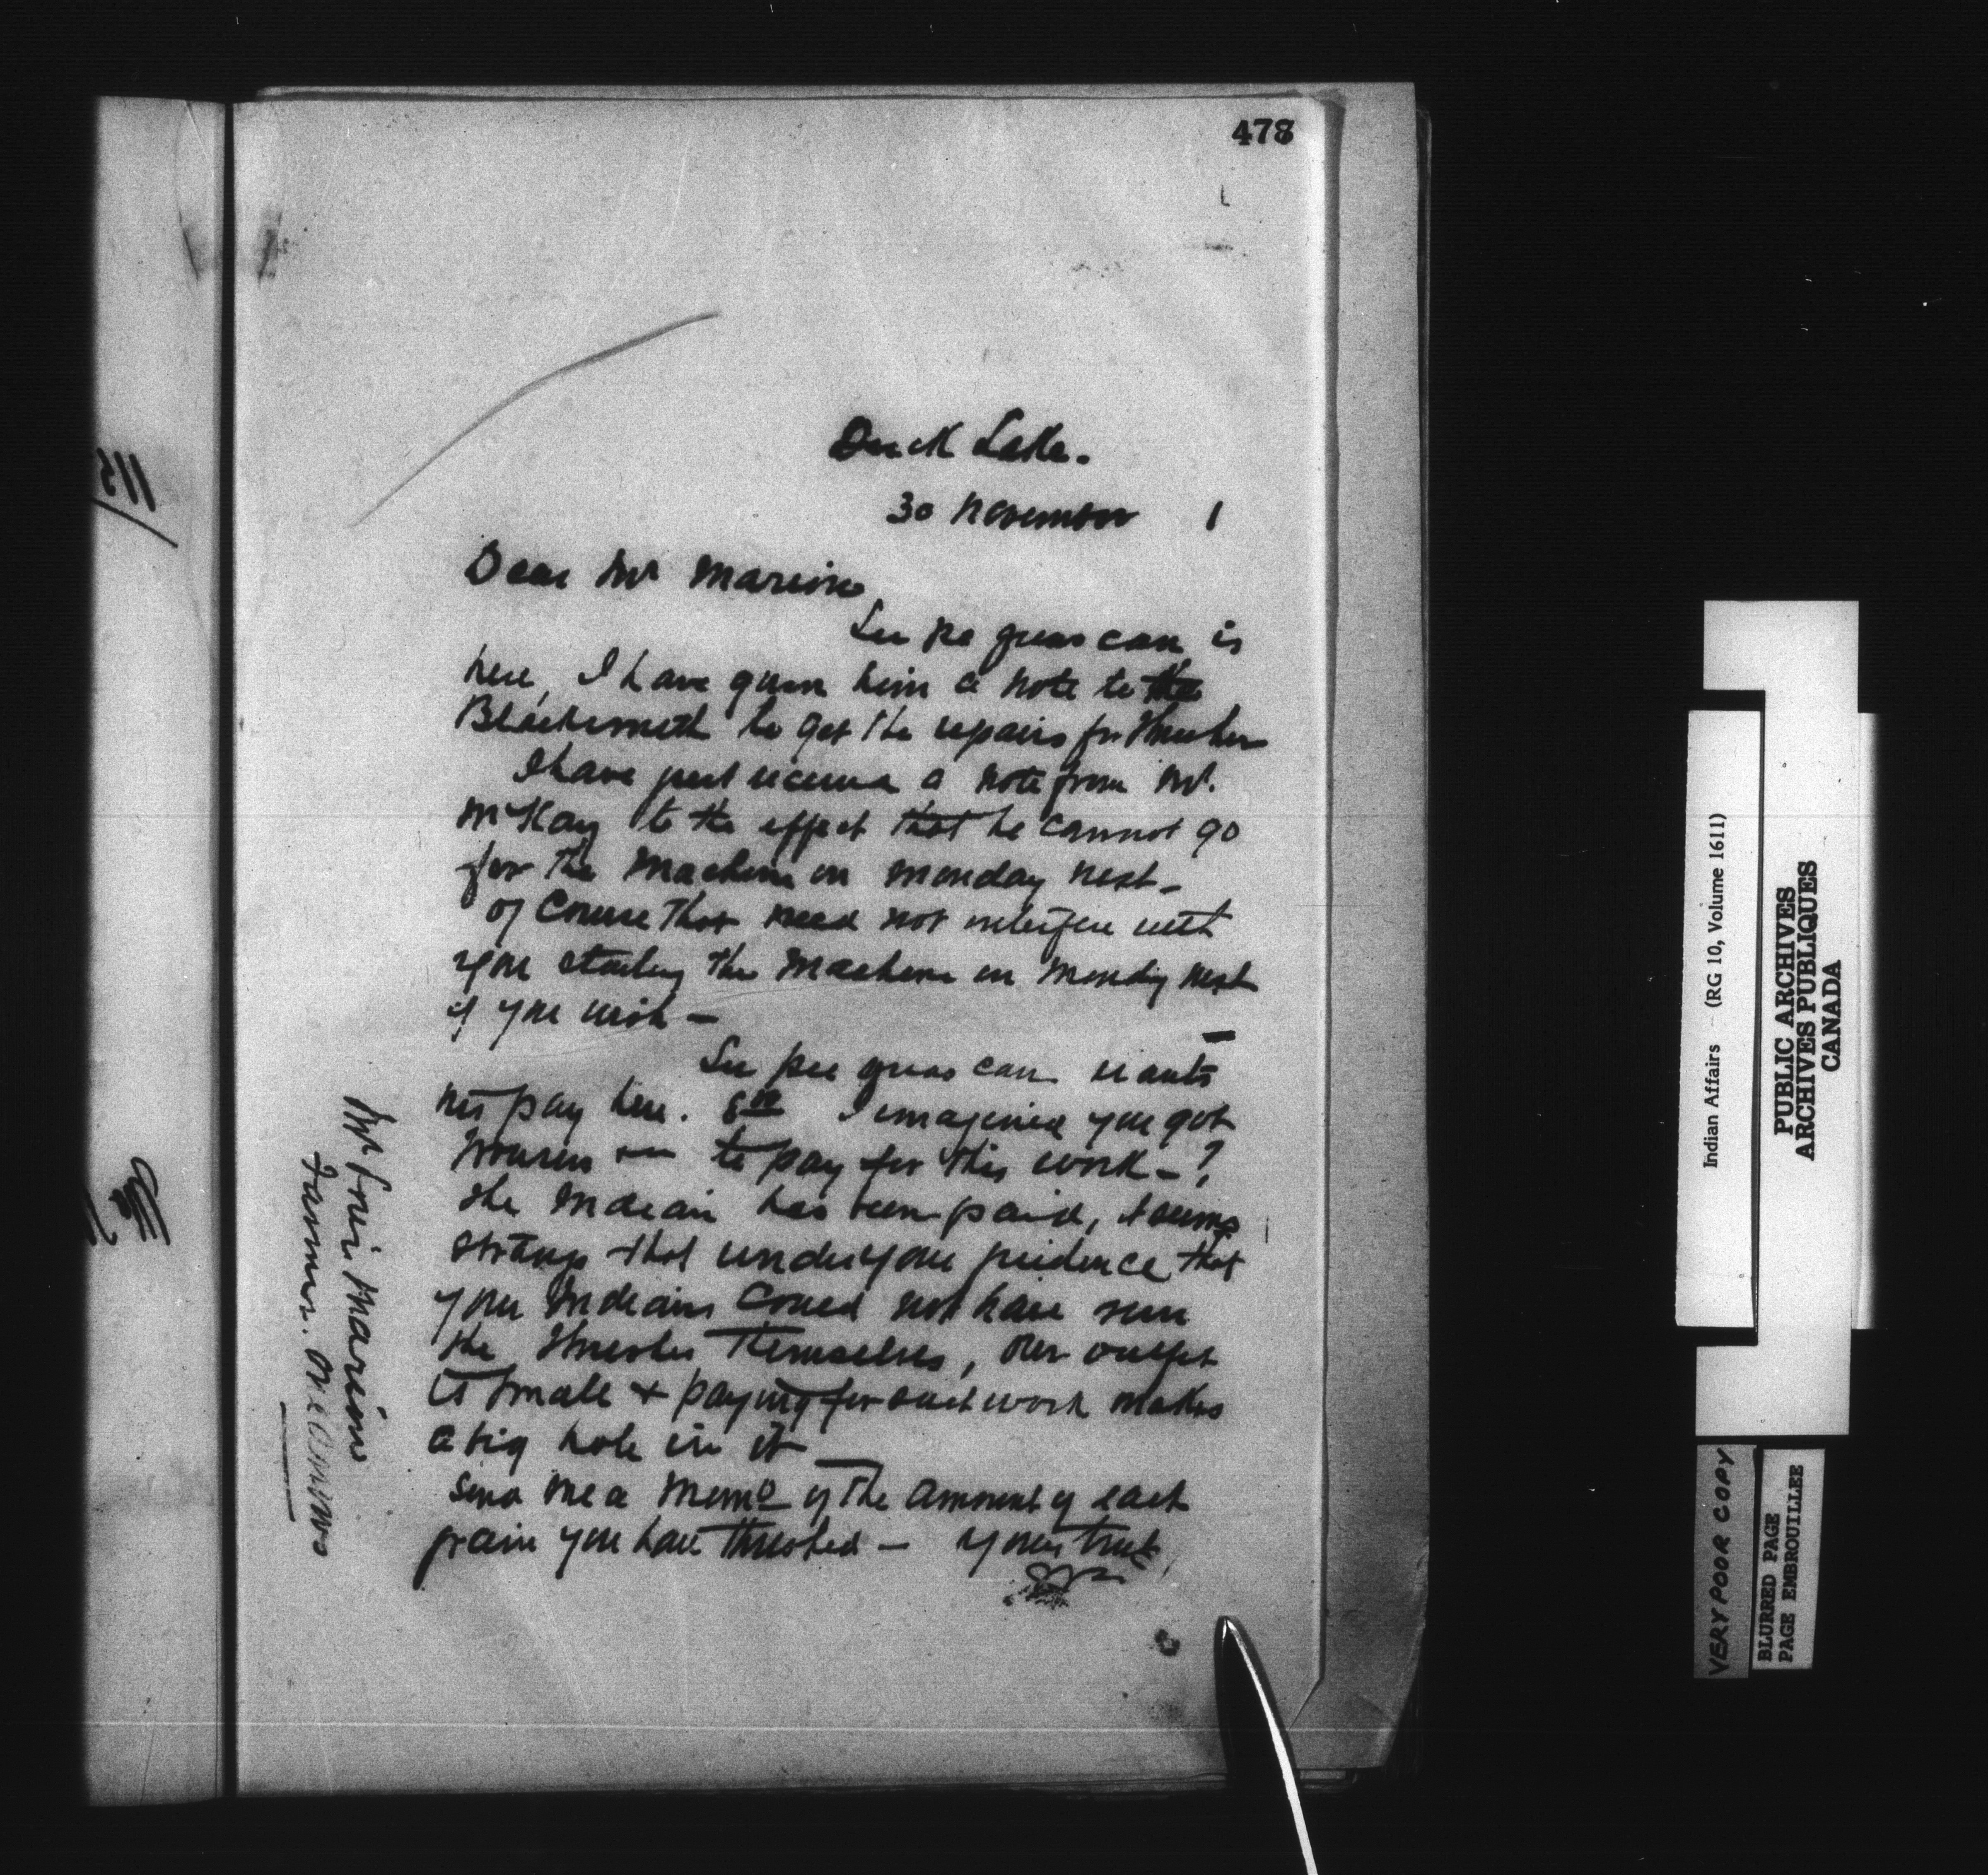 478
Duck Lake.
30 November 1
Dear Mr Marion,
is
here, I have given him a note to the
Blacksmith to get the repairs for Thresher
I have just received a note from Mr.
McKay to the effect that he cannot go
for the Machine on Monday next -
of Course that need not interfere with
you starting the Machine on Monday next
if you wish -
wants
his pay here. I imagined you got
to pay for this work - ?
the Indian has been paid, it seems
strange that under your that
your Indians Could not have run
the Thresher Themselves, our outfit
is small & paying for such work makes
a big hole in it
Send me a Memo of The Amount of each
grain you have threshed - yours truly
Mr Louis Marion
Farmer.
115
Indian Affairs - (RG 10, Volume 1611)
PUBLIC ARCHIVES
ARCHIVES PUBLIQUES
CANADA
VERY POOR COPY
BLURRED PAGE
PAGE EMBROUILLEE